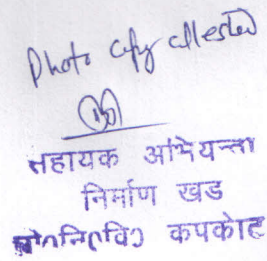 Photo copy attested
सहायक अभियन्ता
निर्माण खंड
लो०नि०वि० कपकोट